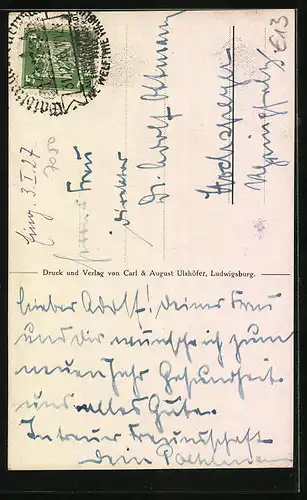 E13
Eing. 3.I.27
7050
Frau
Direktor
Dr. Adolf
Hochspeyer
Druck und Verlag von Carl & August Ulshöfer, Ludwigsburg.
Lieber Adolf! Deiner Frau
und Dir wünsche ich zum
neuen Jahr Gesundheit
und alles Gute.
In treuer Freundschaft
Dein